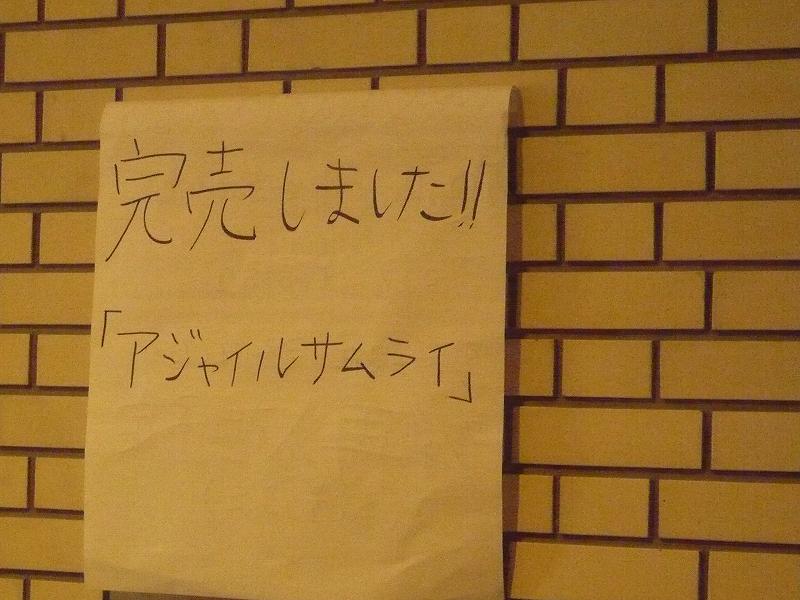 完売しました!!
「アジャイルサムライ」